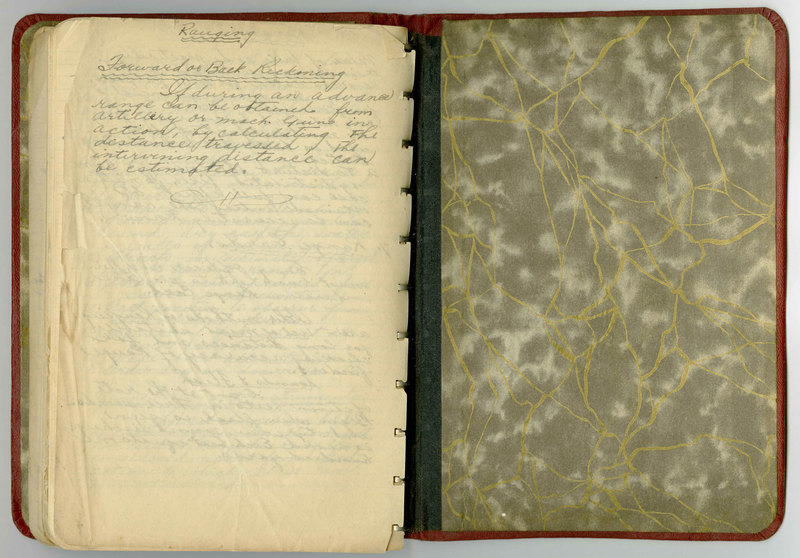 Ranging
Forward or Back Reckoning
If during an advance
range can be obtained from
artillery or mach Guns in
action, by calculating the
distance traversed, the
intervening distance can
be estimated.